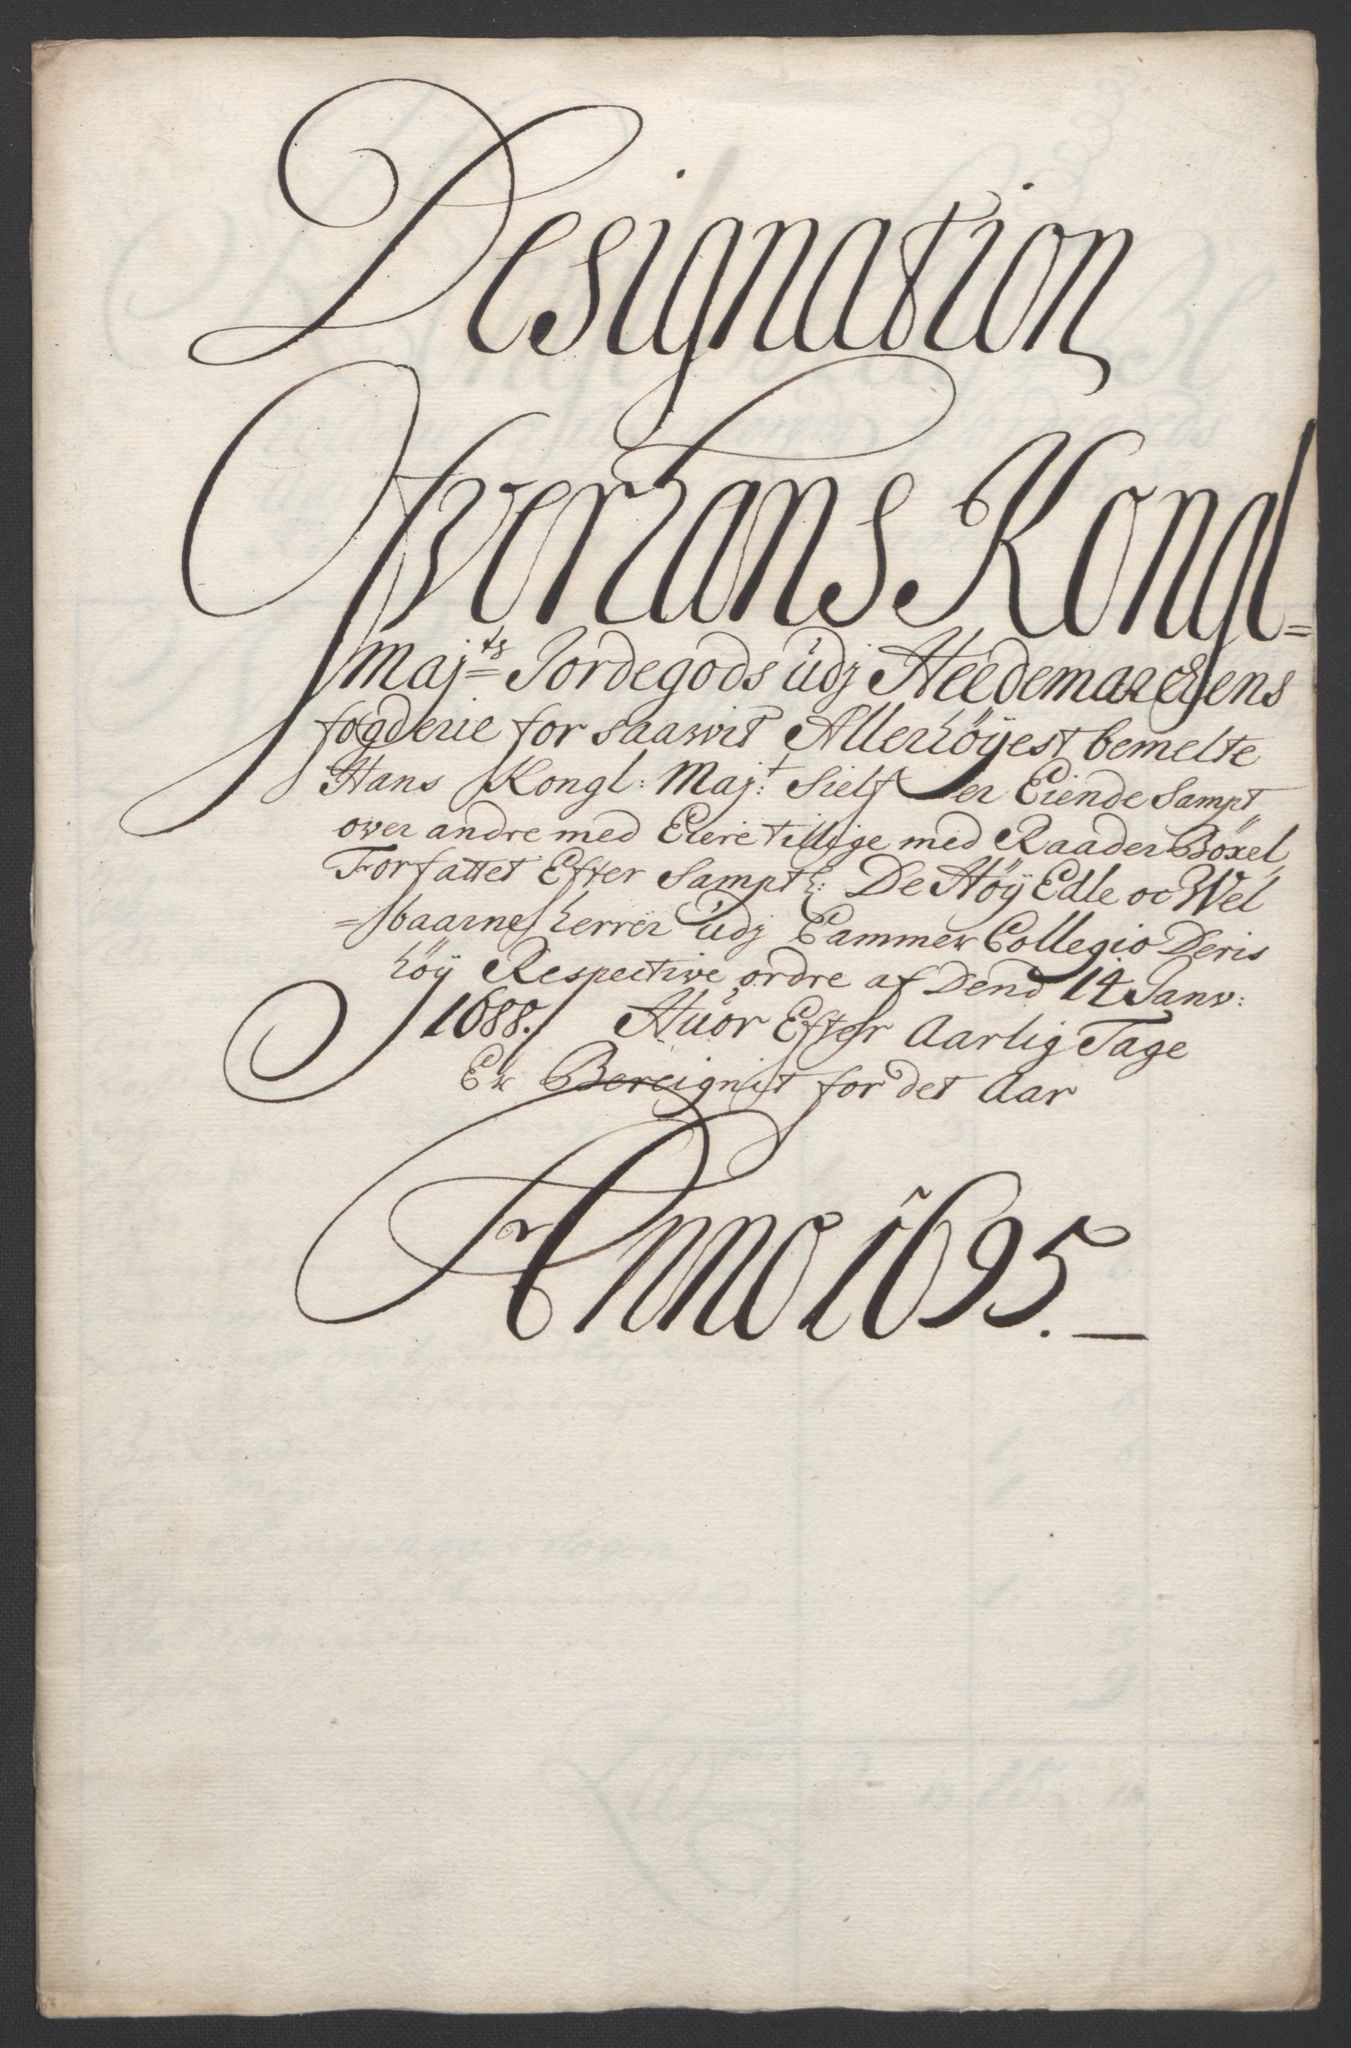 Designation
Ofver hans Kongl=
Maj:ts Jordegods udj Heedemarchens
fogderie for saawit Allerhöyest bemelte
Hans Kongl: Maj:t Sielf er Eiende Sampt
over andre med Eiere tillige med Raader Böxel,
Forfattet Efter Sampt: De Höy Edle oc Wel
=baarne herrer udj Cammer Collegio Deris
höy Respective ordre af Dend 14 Janv:
1688. Huor Efter Aarlig Tage
Er Bereignit for det Aar
Anno 1695.